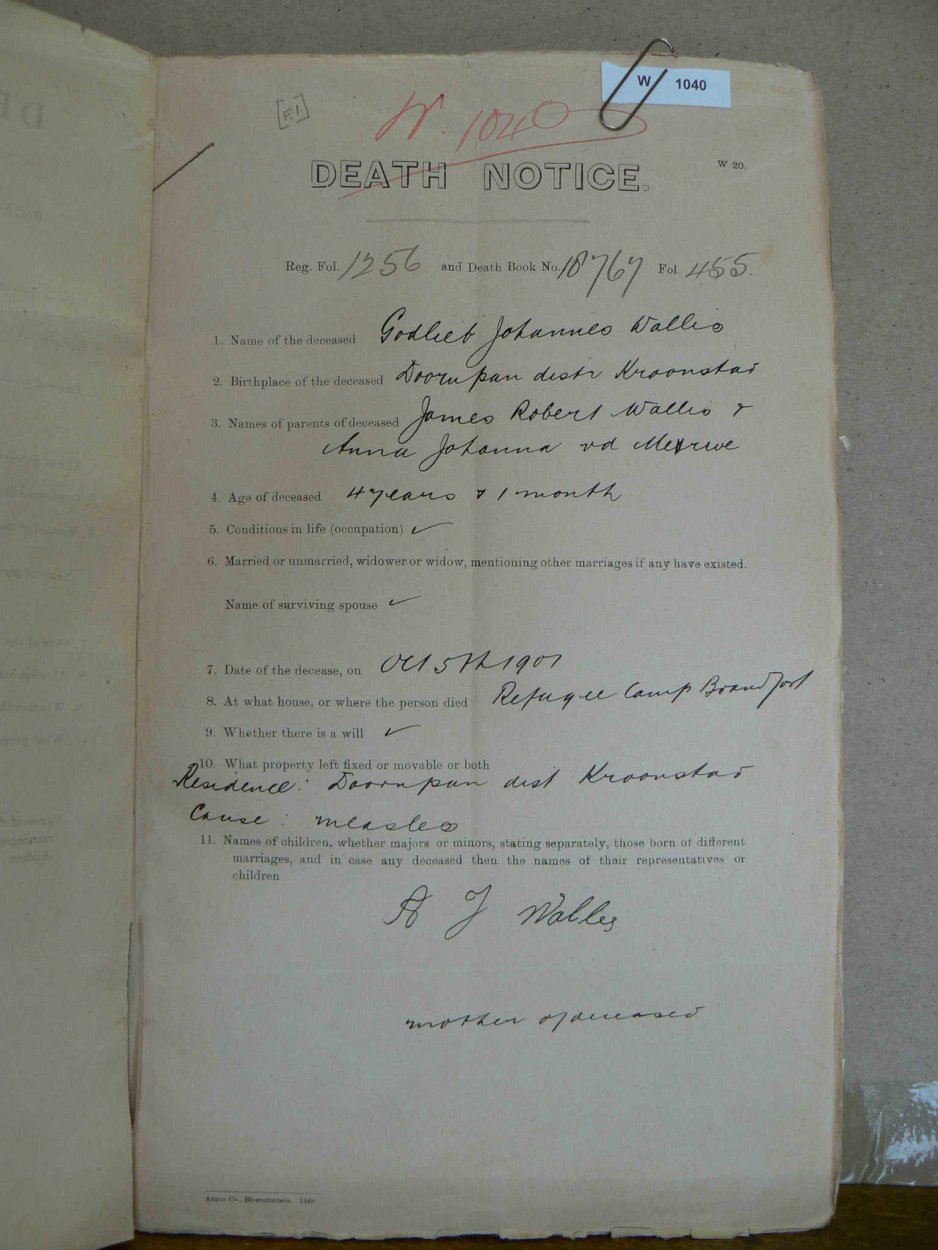 W 1040
[F.I]
W. 1040
DEATH NOTICE.
W 20.
Reg. Fol. 1256 and Death Book No. 18767 Fol. 455.
1. Name of the deceased Godlieb Johannes Wallis
2. Birthplace of the deceased Doornpan distr Kroonstad
3. Names of parents of deceased James Robert Wallis &
Anna Johanna vd Merwe
4. Age of deceased 4 years & 1 month
5. Conditions in life (occupation) ✓
6. Married or unmarried, widower or widow, mentioning other marriages if any have existed.
Name of surviving spouse ✓
7. Date of the decease, on Oct 5th 1901
8. At what house, or where the person died Refugee Camp Brandfort
9. Whether there is a will ✓
10. What property left fixed or movable or both
Residence: Doornpan dist Kroonstad
Cause: measles
11. Names of children, whether majors or minors, stating separately, those born of different
marriages, and in case any deceased then the names of their representatives or
children
A J Wallis
mother of deceased
Argus Co., Bloemfontein.